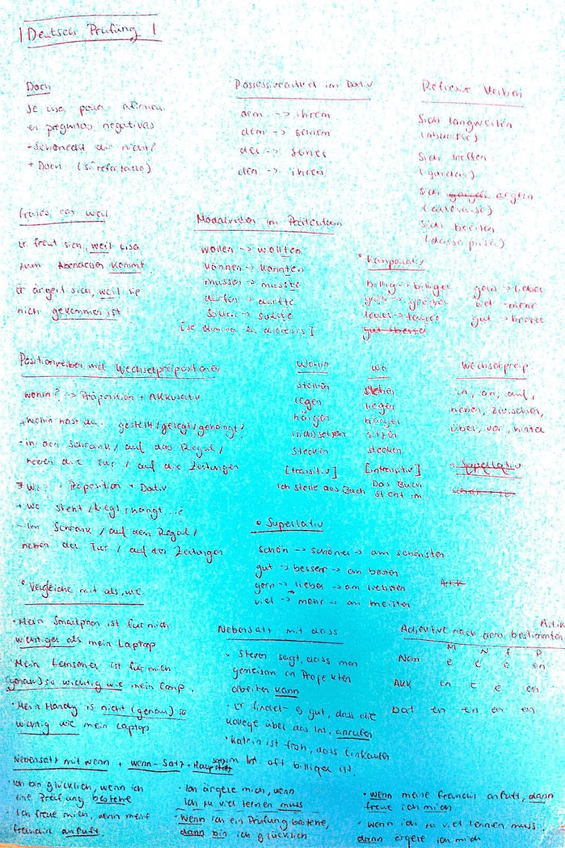 Deutsch Prüfung
Doch
Se usa para afirmar
en preguntas negativas
+ Doch (sí refortado)
Possessivartikel im Dativ
dem -> ihrem
dem -> seinem
der -> seiner
den -> ihren
Reflexive Verben
Sich langweilen
(aburrirse)
Sich
Sich ärgern
Sich beeilen
(darse prisa)
Frases con weil
Er freut sich, weil Lisa
zum Abendessen kommt
Er ärgert sich, weil sie
nicht gekommen ist
Modalverben im Präteritum
wollen -> wollten
können -> konnten
müssen -> musste
dürfen -> durfte
sollen -> sollte
* Komparativ
billig -> billiger
teuer -> teurer
gern -> lieber
viel -> mehr
gut -> besser
Positionsverben mit Wechselpräpositionen
wohin? -> Präposition + Akkusativ
+ Wohin hast du gestellt/gelegt/gehängt/
- in den Schrank / auf das Regal /
neben die Tür / auf die Zeitungen
* Wo? -> Präposition + Dativ
+ Wo steht/liegt/hängt
- Im Schrank / auf dem Regal /
neben der Tür / auf den Zeitungen
Wohin
stellen
legen
hängen
stecken
[transitiv]
Ich stelle das Buch
wo
stehen
liegen
hängen
sitzen
stecken
[intransitiv]
Das Buch
steht im
Wechselpräp
in, an, auf,
neben, zwischen,
über, vor, hinter
Superlativ
• Superlativ
schön -> schöner -> am schönsten
gut -> besser -> am besten
gern -> lieber -> am liebsten
viel -> mehr -> am meisten
* Vergleiche mit als, wie
• Mein Smartphon ist für mich
wichtiger als mein Laptop
Mein Fernseher ist für mich
(genau) so wichtig wie mein Comp.
• Mein Handy ist nicht (genau) so
wichtig wie mein Laptop
Nebensatz mit dass
• Steven sagt, dass man
gemeinsam an Projekten
arbeiten kann
• Er findet es gut, dass die
Kollege über das Int. anrufen
• Katrin ist froh, dass Einkaufen
im Int oft billiger ist.
Adjektive nach dem bestimmten
M N F P
Nom e e e en
Akk en e e en
Dat en en en en
Nebensatz mit wenn + wenn-Satz + Hauptsatz
• Ich bin glücklich, wenn ich
eine Prüfung bestehe
Ich freue mich, wenn meine
Freundin anruft
• Ich ärgere mich, wenn
ich zu viel lernen muss
• Wenn ich ein Prüfung bestehe,
dann bin ich glücklich
• wenn meine Freundin anruft, dann
freue ich mich
• wenn ich zu viel lernen muss,
dann ärgere ich mich